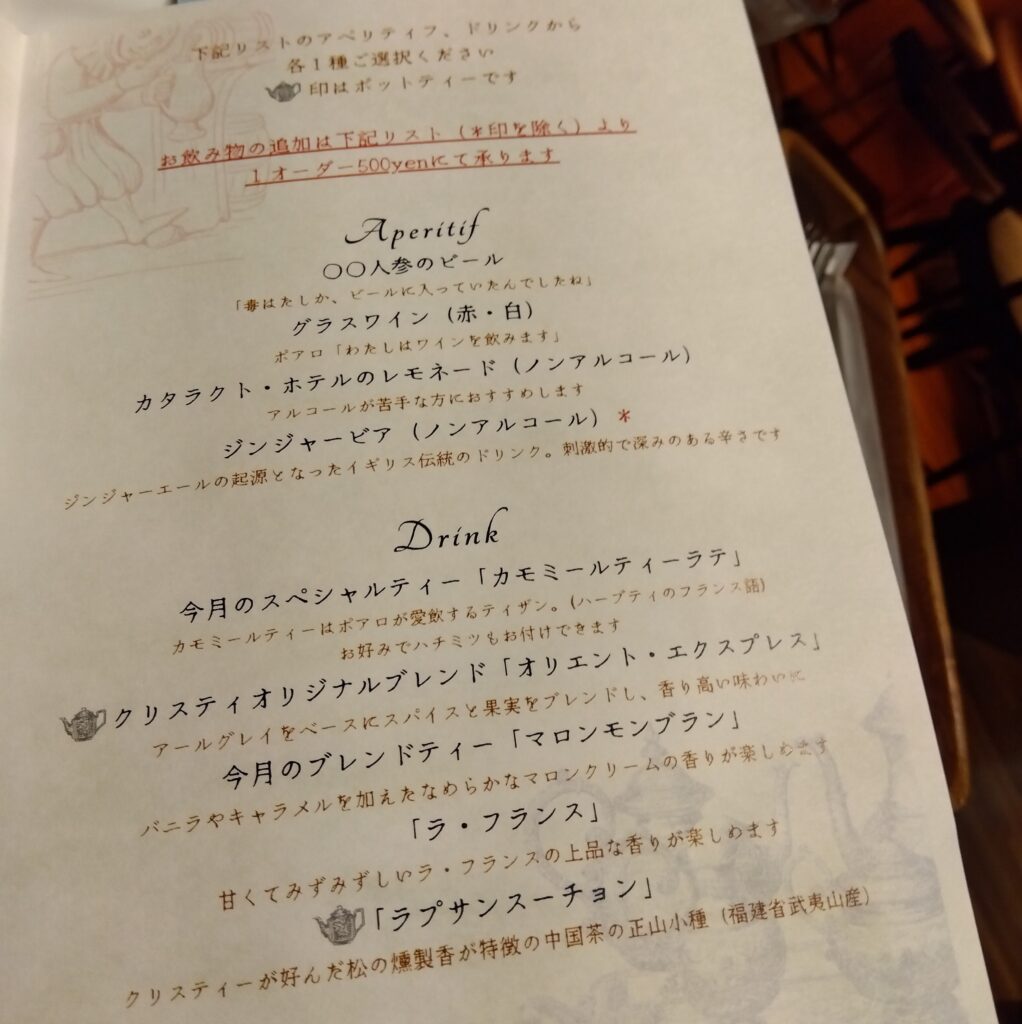 下記リストのアペリティフ、ドリンクから
各1種ご選択ください
印はポットティーです
お飲み物の追加は下記リスト（*印を除く）より
1オーダー500yenにて承ります
Aperitif
○○人参のビール
「毒はたしか、ビールに入っていたんでしたね」
グラスワイン（赤・白）
ポアロ「わたしはワインを飲みます」
カタラクト・ホテルのレモネード（ノンアルコール）
アルコールが苦手な方におすすめします
ジンジャービア（ノンアルコール）*
ジンジャーエールの起源となったイギリス伝統のドリンク。刺激的で深みのある辛さです
Drink
今月のスペシャルティー「カモミールティーラテ」
カモミールティーはポアロが愛飲するティザン。(ハーブティのフランス語)
お好みでハチミツもお付けできます
クリスティオリジナルブレンド「オリエント・エクスプレス」
アールグレイをベースにスパイスと果実をブレンドし、香り高い味わいに
今月のブレンドティー「マロンモンブラン」
バニラやキャラメルを加えたなめらかなマロンクリームの香りが楽しめます
「ラ・フランス」
甘くてみずみずしいラ・フランスの上品な香りが楽しめます
「ラプサンスーチョン」
クリスティーが好んだ松の燻製香が特徴の中国茶の正山小種（福建省武夷山産）